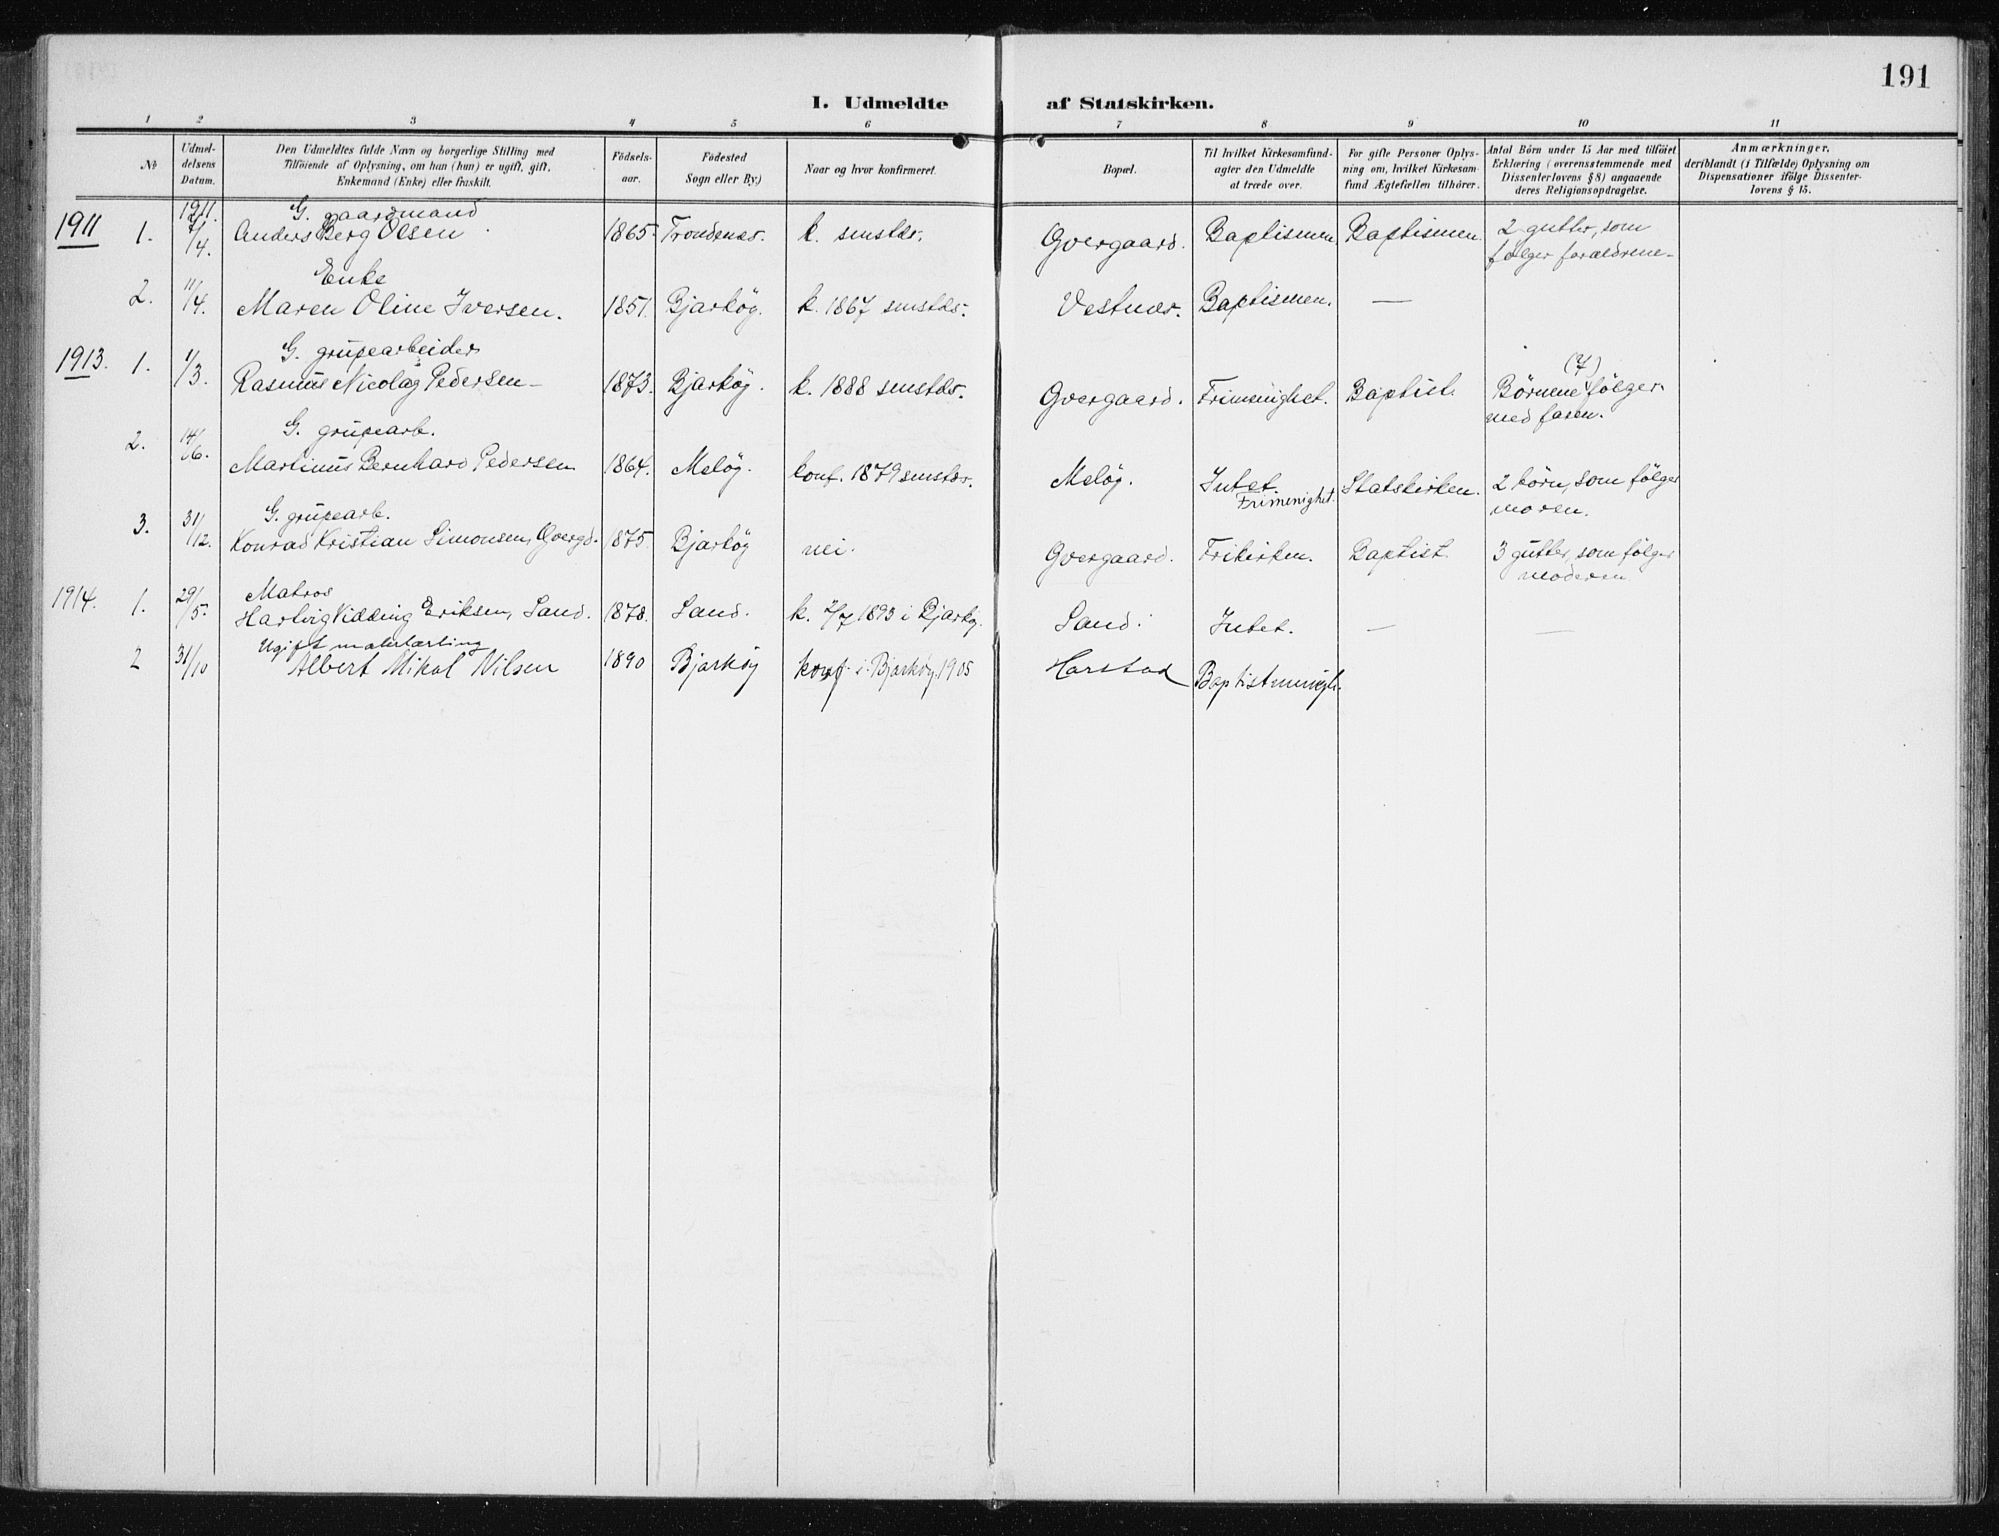 191
I. Udmeldte af Statskirken.
1 2 3 4 5 6 7 8 9 10 11
No
Udmel-
delsens
Datum.
Den Udmeldtes fulde Navn og borgerlige Stilling med
Tilföiende af Oplysning, om han (hun) er ugift, gift,
Enkemand (Enke) eller fraskilt.
Födsels-
aar.
Födested
Sogn eller By.)
Naar og hvor konfirmeret.
Bopæl.
Til hvilket Kirkesamfund-
agter den Udmeldte
at træde over.
For gifte Personer Oplys-
ning om, hvilket Kirkesam-
fund Ægtefællen tilhörer.
Antal Börn under 15 Aar med tilföiet
Erklæring (overensstemmende med
Dissenterlovens § 8) angaaende
deres Religionsopdragelse.
Anmærkninger,
deriblandt (i Tilfælde) Oplysning om
Dispensationer ifölge Dissenter-
lovens § 15.
1911. G. gaardmand
1911 1. 7/4. Anders Berg Olsen 1865. Trondenes. k. smstds. Qvergaard. Baptismen. Baptismen. 2 gutter, som
følger forældrene.
Enke
2. 11/4. Maren Oline Iversen. 1851. Bjarköy. k. 1867 smstds. Vestnes. Baptismen. —
G. grubearbeider
1913. 1. 1/3. Rasmus Nicolay Pedersen 1873. Bjarköy. k. 1888 smstds. Qvergaard. Frimenighet. Baptist. Børnene (4) følger
med faren.
G. grubearb.
2. 14/6. Martinus Bernhard Pedersen 1864. Meløy. konf. 1879 smstds. Meløy. Intet Statskirken. 2 børn, som følger
Frimenighet. moren.
G. grubearb.
3. 31/12. Konrad Kristian Simonsen, Qvergd. 1875. Bjarköy nei. Qvergaard. Frikirken. Baptist 3 gutter, som følger
moderen
Matros
1914. 1. 29/5. Hartvig Vidding Eriksen, Sand. 1878. Sand. k. 2/7 1893 i Bjarköy. Sand. Intet. — —
Ugift malerlærling
2 31/10 Albert Mikal Nilsen 1890 Bjarköy konf. i Bjarköy 1905 Harstad Baptistmenigh.